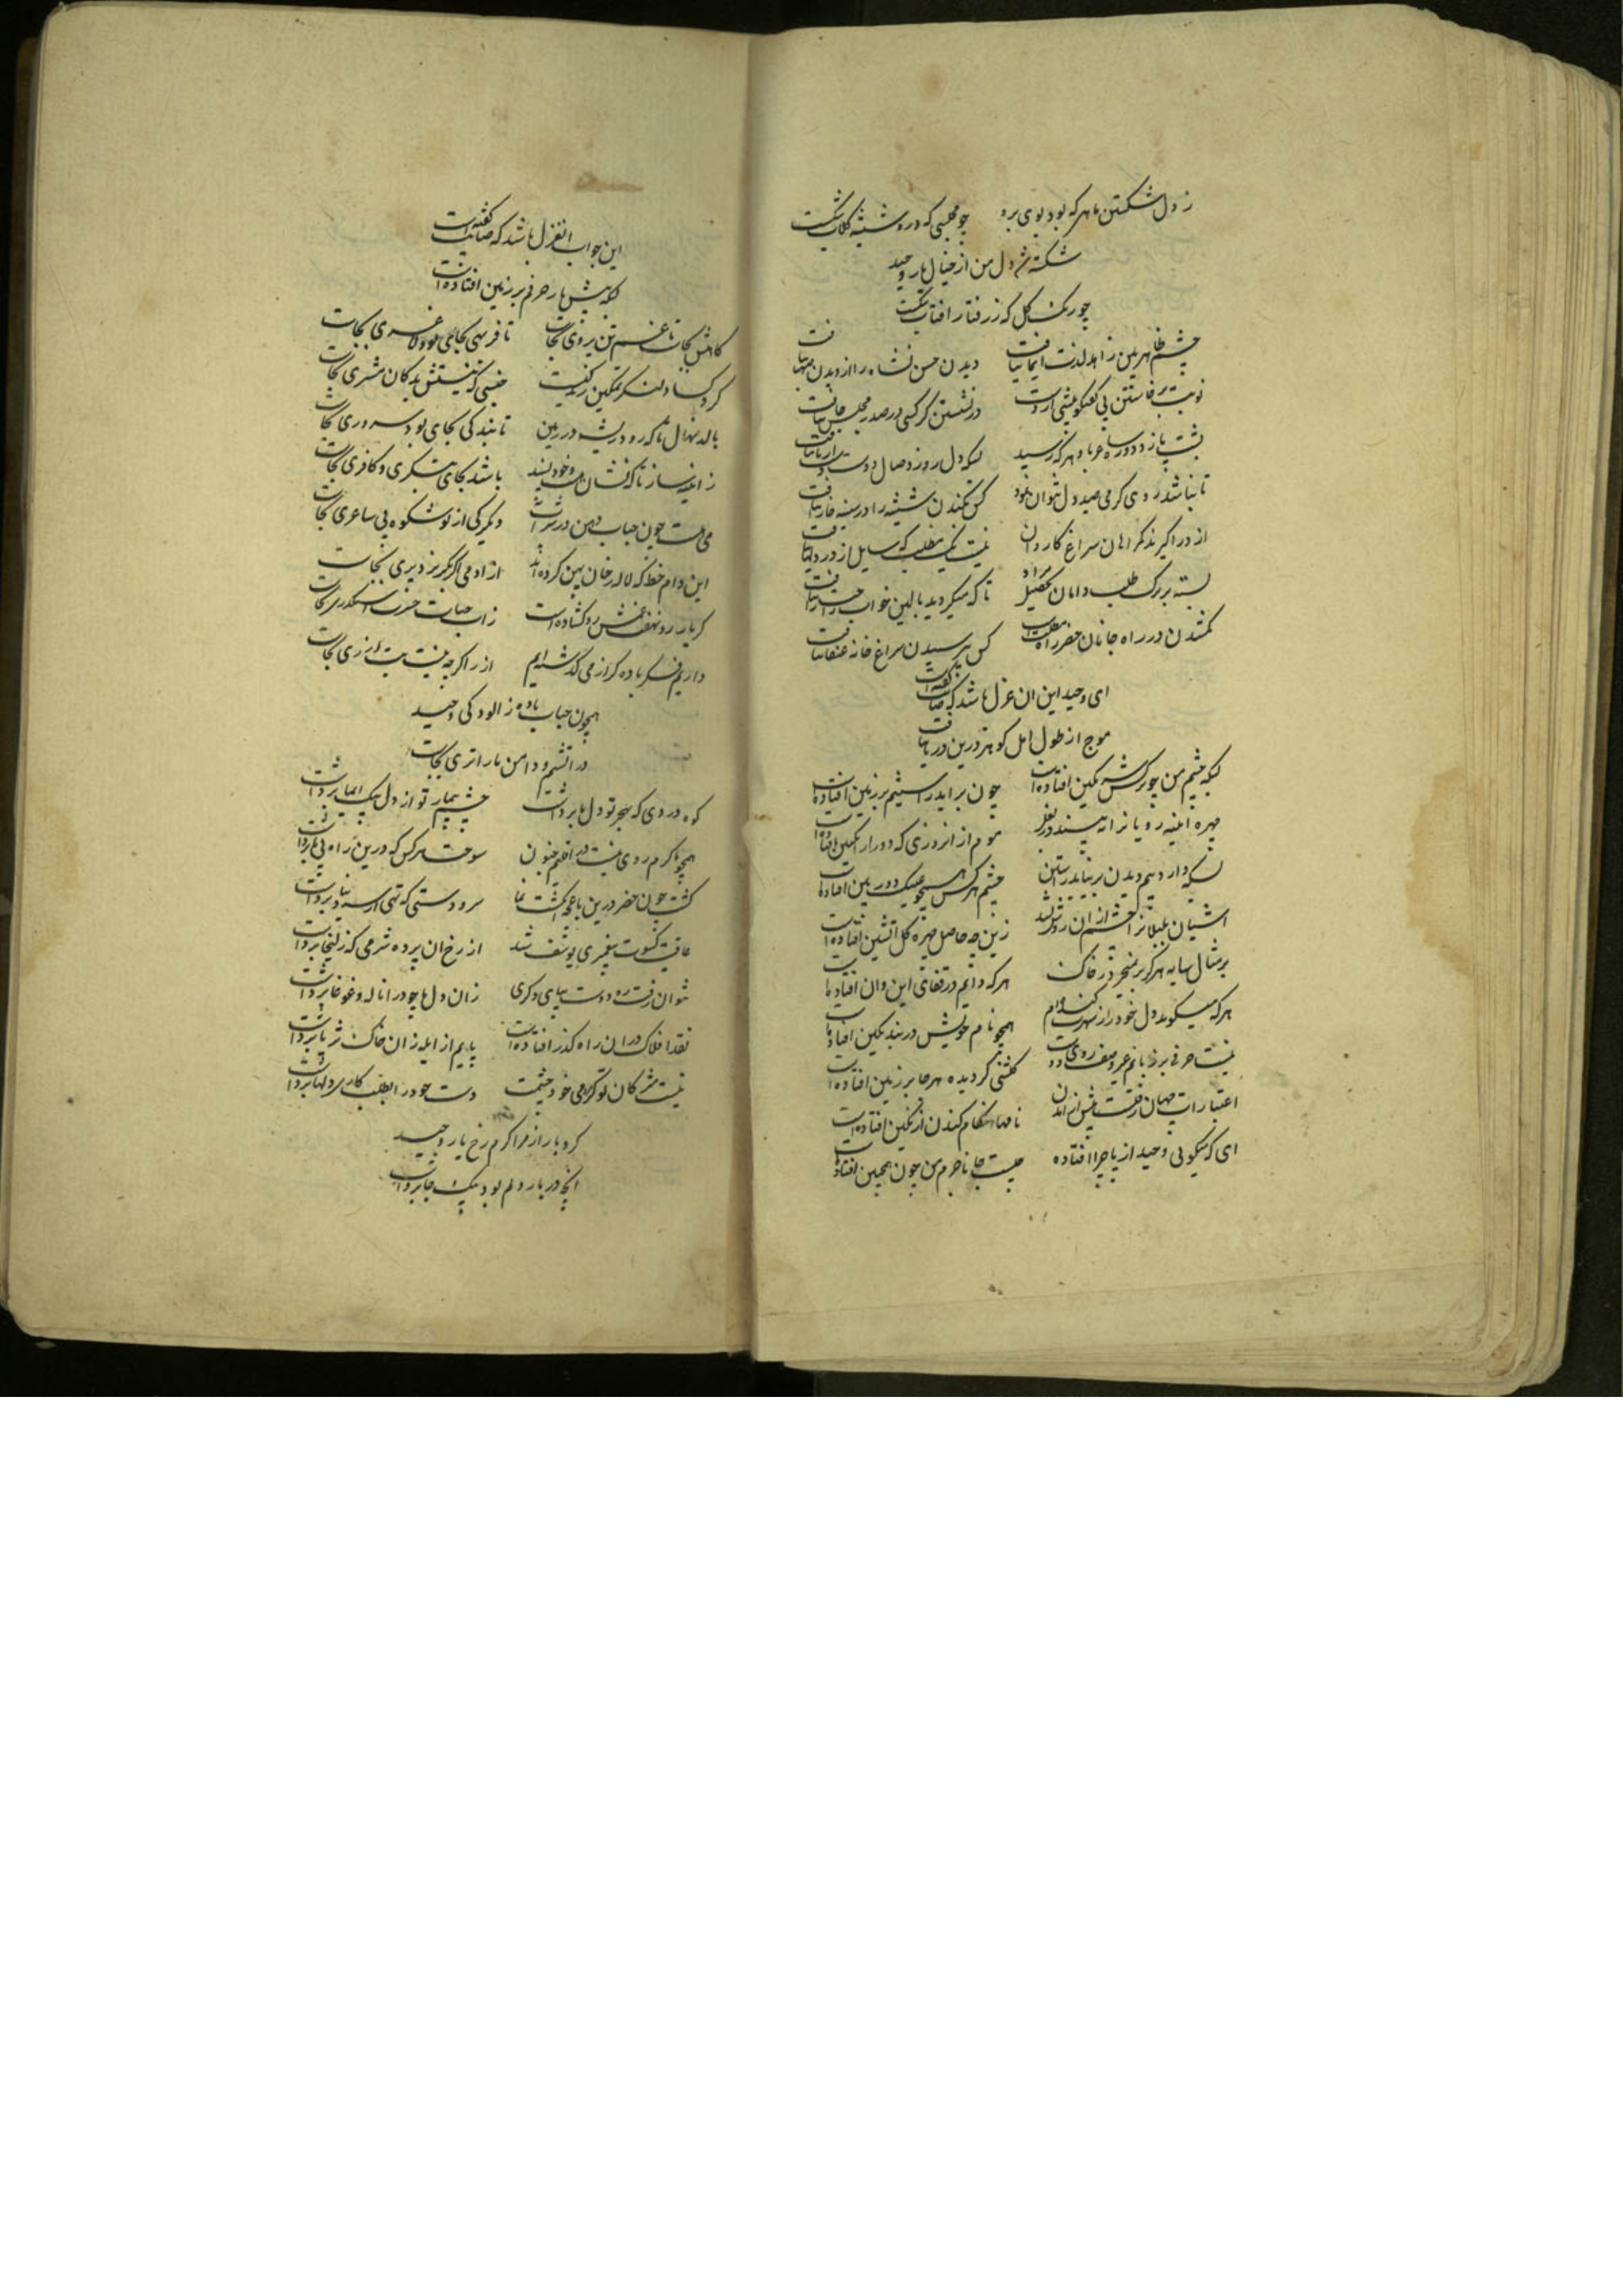 ز دل شکستن ما هر که بود بوی برد چو مجلسی که درو شیشه گلاب شکست
شکسته شد دل من از خیال یار وحید
چو رنگ گل که ز رفتار افتاب شکست
چشم ظاهربین زاهد لذت ایما نیافت دیدن حسن نشاه را از دیدن مینا نیافت
نوبت برخاستن بی گفتگو پیشی ازوست در نشستن گر کسی در صدر مجلس جا نیافت
پشت پا زد دور ساغر با و هر که رسید بسکه دل روز وصال دوست دست از پا نیافت
تا نباشد روی گرمی صید دل نتوان نمود کس بکندن شیشه را در سینه خارا نیافت
از در اگیرند گمراهان سراغ کاروان نیست یک مطلب که سایل از در دلها نیافت
بسته بر برگ طلب دامان تحصیل مراد تا که میگردید بالین خواب راحت را نیافت
گمشدن در راه جانان خضر راه مطلبست کس بپرسیدن سراغ خانه عنقا نیافت
ای وحید این ان غزل باشد که صائب گفته است
موج از طول امل گوهر درین دریا نیافت
بسکه چشم من چو نرگس شرمگین افتاده است چون براید راستیم بر زمین افتاده است
چهره اینه رویانرا نه بیند در نظر موم از انروزی که دور از انگبین افتاده است
بسکه دارد بیم دیدن بر نیاید راستین چشم هرکس همچو عینک دوربین افتاده است
اشیان بلبلانرا اتشم از ان روشن نشد زین چه حاصل چهره گل اتشین افتاده است
بر مثال سایه هرگز بر نخیزد ز خاک هر که دایم در قفای این و ان افتاده است
هر که میگوید دل خود را ز شهرت کنده ام همچو نام خویش در بند نگین افتاده است
نیست حرفی بر زبانم غیر وصف روی دوست گلشنی گردیده هرجا بر زمین افتاده است
اعتبارات جهان رفتست پیش از امدن نامها هنگام کندن از نگین افتاده است
ای که میگوئی وحید از پا چرا افتاده چیست جانا جرم من چون همچنین افتاده است
این جواب انغزل باشد که صائب گفته است
بسکه پیش یار حرفم بر زمین افتاده است
کاهش کجاست تا غم تن پروری کجاست تا فربهی بجای بود لاغری کجاست
گرد کساد لنگر تمکین رنگ نیست جنسی که نیستش بدکان مشتری کجاست
بالد نهال تا که رود ریشه در زمین تا بندگی بجای بود سروری کجاست
ز اینه ساز تا که نشان هست و خودپسند باشد بجای بتگری و کافری کجاست
می هست چون حباب دهن در سراست دیگر کی از تو شکوه بی ساغری کجاست
این دام خط که لاله رخان پهن کرده اند ازادمی اگر نگریزد پری کجاست
گر یار رو نهفت غمش رو گشاده است زاب حیات حسرت اسکندری کجاست
داریم فکر باده گر از می گذشته ایم ازر اگر چه نیست بت ازری کجاست
همچون حباب باده ز الودگی وحید
در اتشیم و دامن ما را تری کجاست
کوه دردی که بهجر تو دل ما برداشت چشم بیمار تو از دل بیک ایما برداشت
همچو گرم روی نیست در اقلیم جنون سوخت هر کس که درین راه پی ما برداشت
گشت چون خضر درین باغچه انگشت نما سرو دستی که تهی از سر دنیا برداشت
عاقبت کسوت پیغمبری یوسف شد از رخ ان پرده شرمی که زلیخا برداشت
نتوان رفت ره دوست بپای دگری زان دل ما چو درا ناله و غوغا برداشت
نقد افلاک در ان راه گذر افتاده است پایم از ابله زان خاک ثریا برداشت
نیست مژگان تو گر می خور چشمت دست خود در طلب کار دلها برداشت
کرد بار از مرا گرم رخ یار وحید
انچه در بار دلم بود بیک جا برداشت